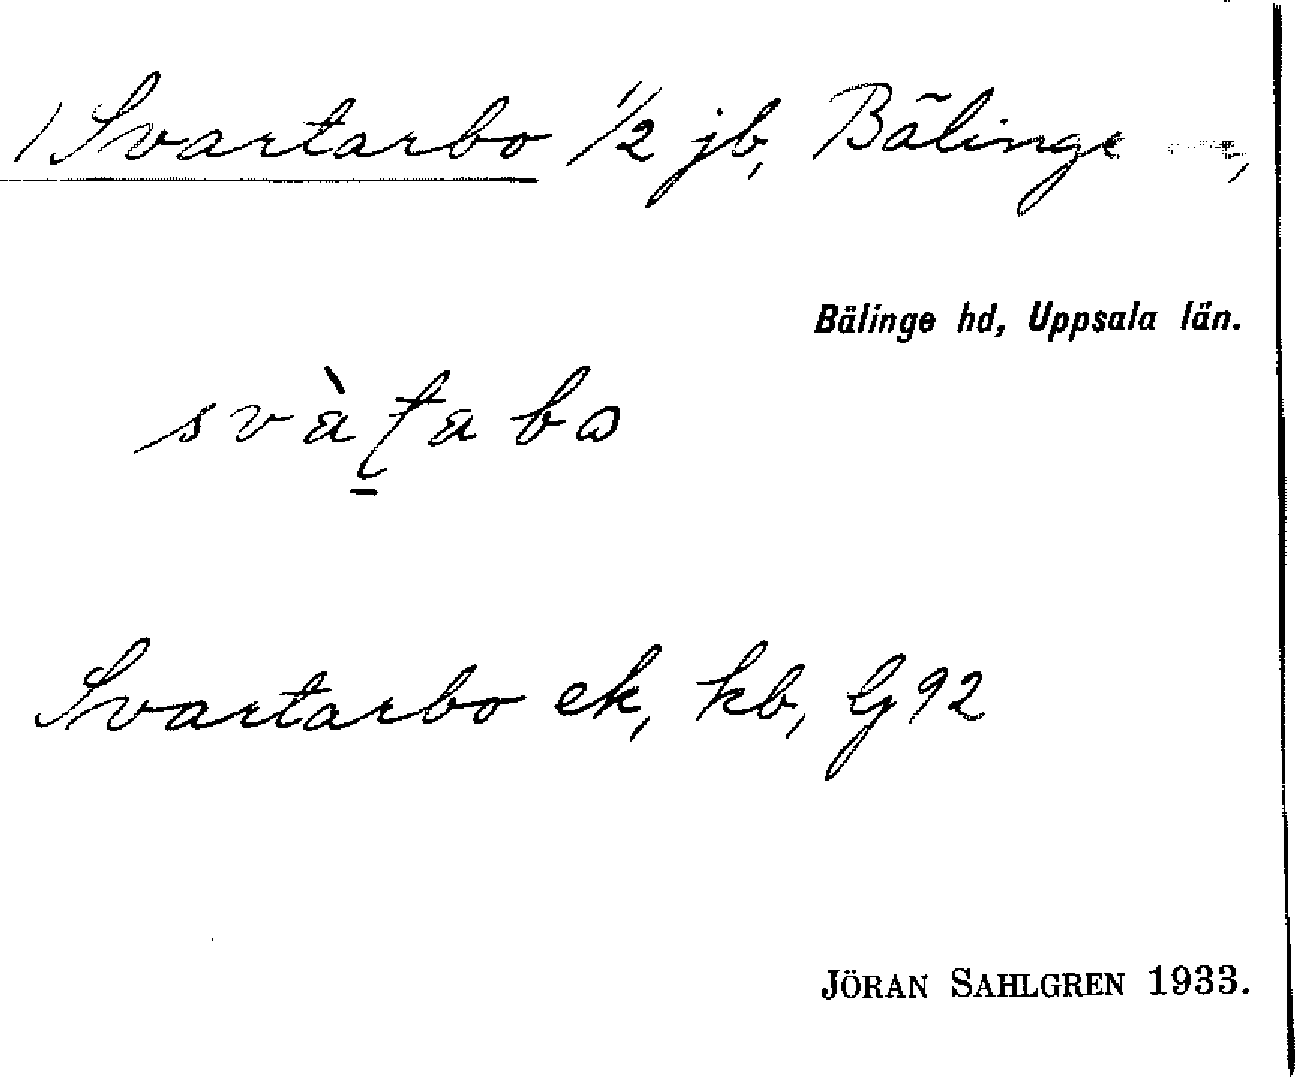 1 Svartarbo ½ jb, Bälinge
Bälinge hd, Uppsala län.
svàʈabɷ
Svartarbo ek, kb, G92
JÖRAN SAHLGREN 1933.